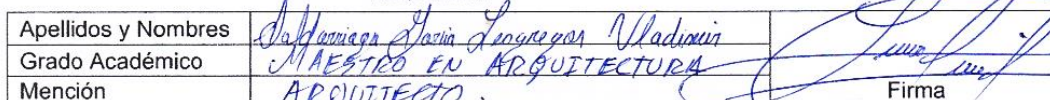 Apellidos y Nombres Saldarriaga Vladimir
Grado Académico MAESTRO EN ARQUITECTURA
Mención ARQUITECTO. Firma